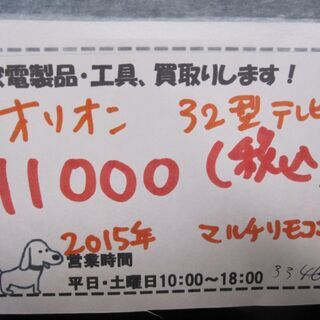 家電製品・工具、買取りします!
オリオン 32型テレビ
11000(税込)
2015年 マルチリモコン
営業時間
平日・土曜日10:00〜18:00 334